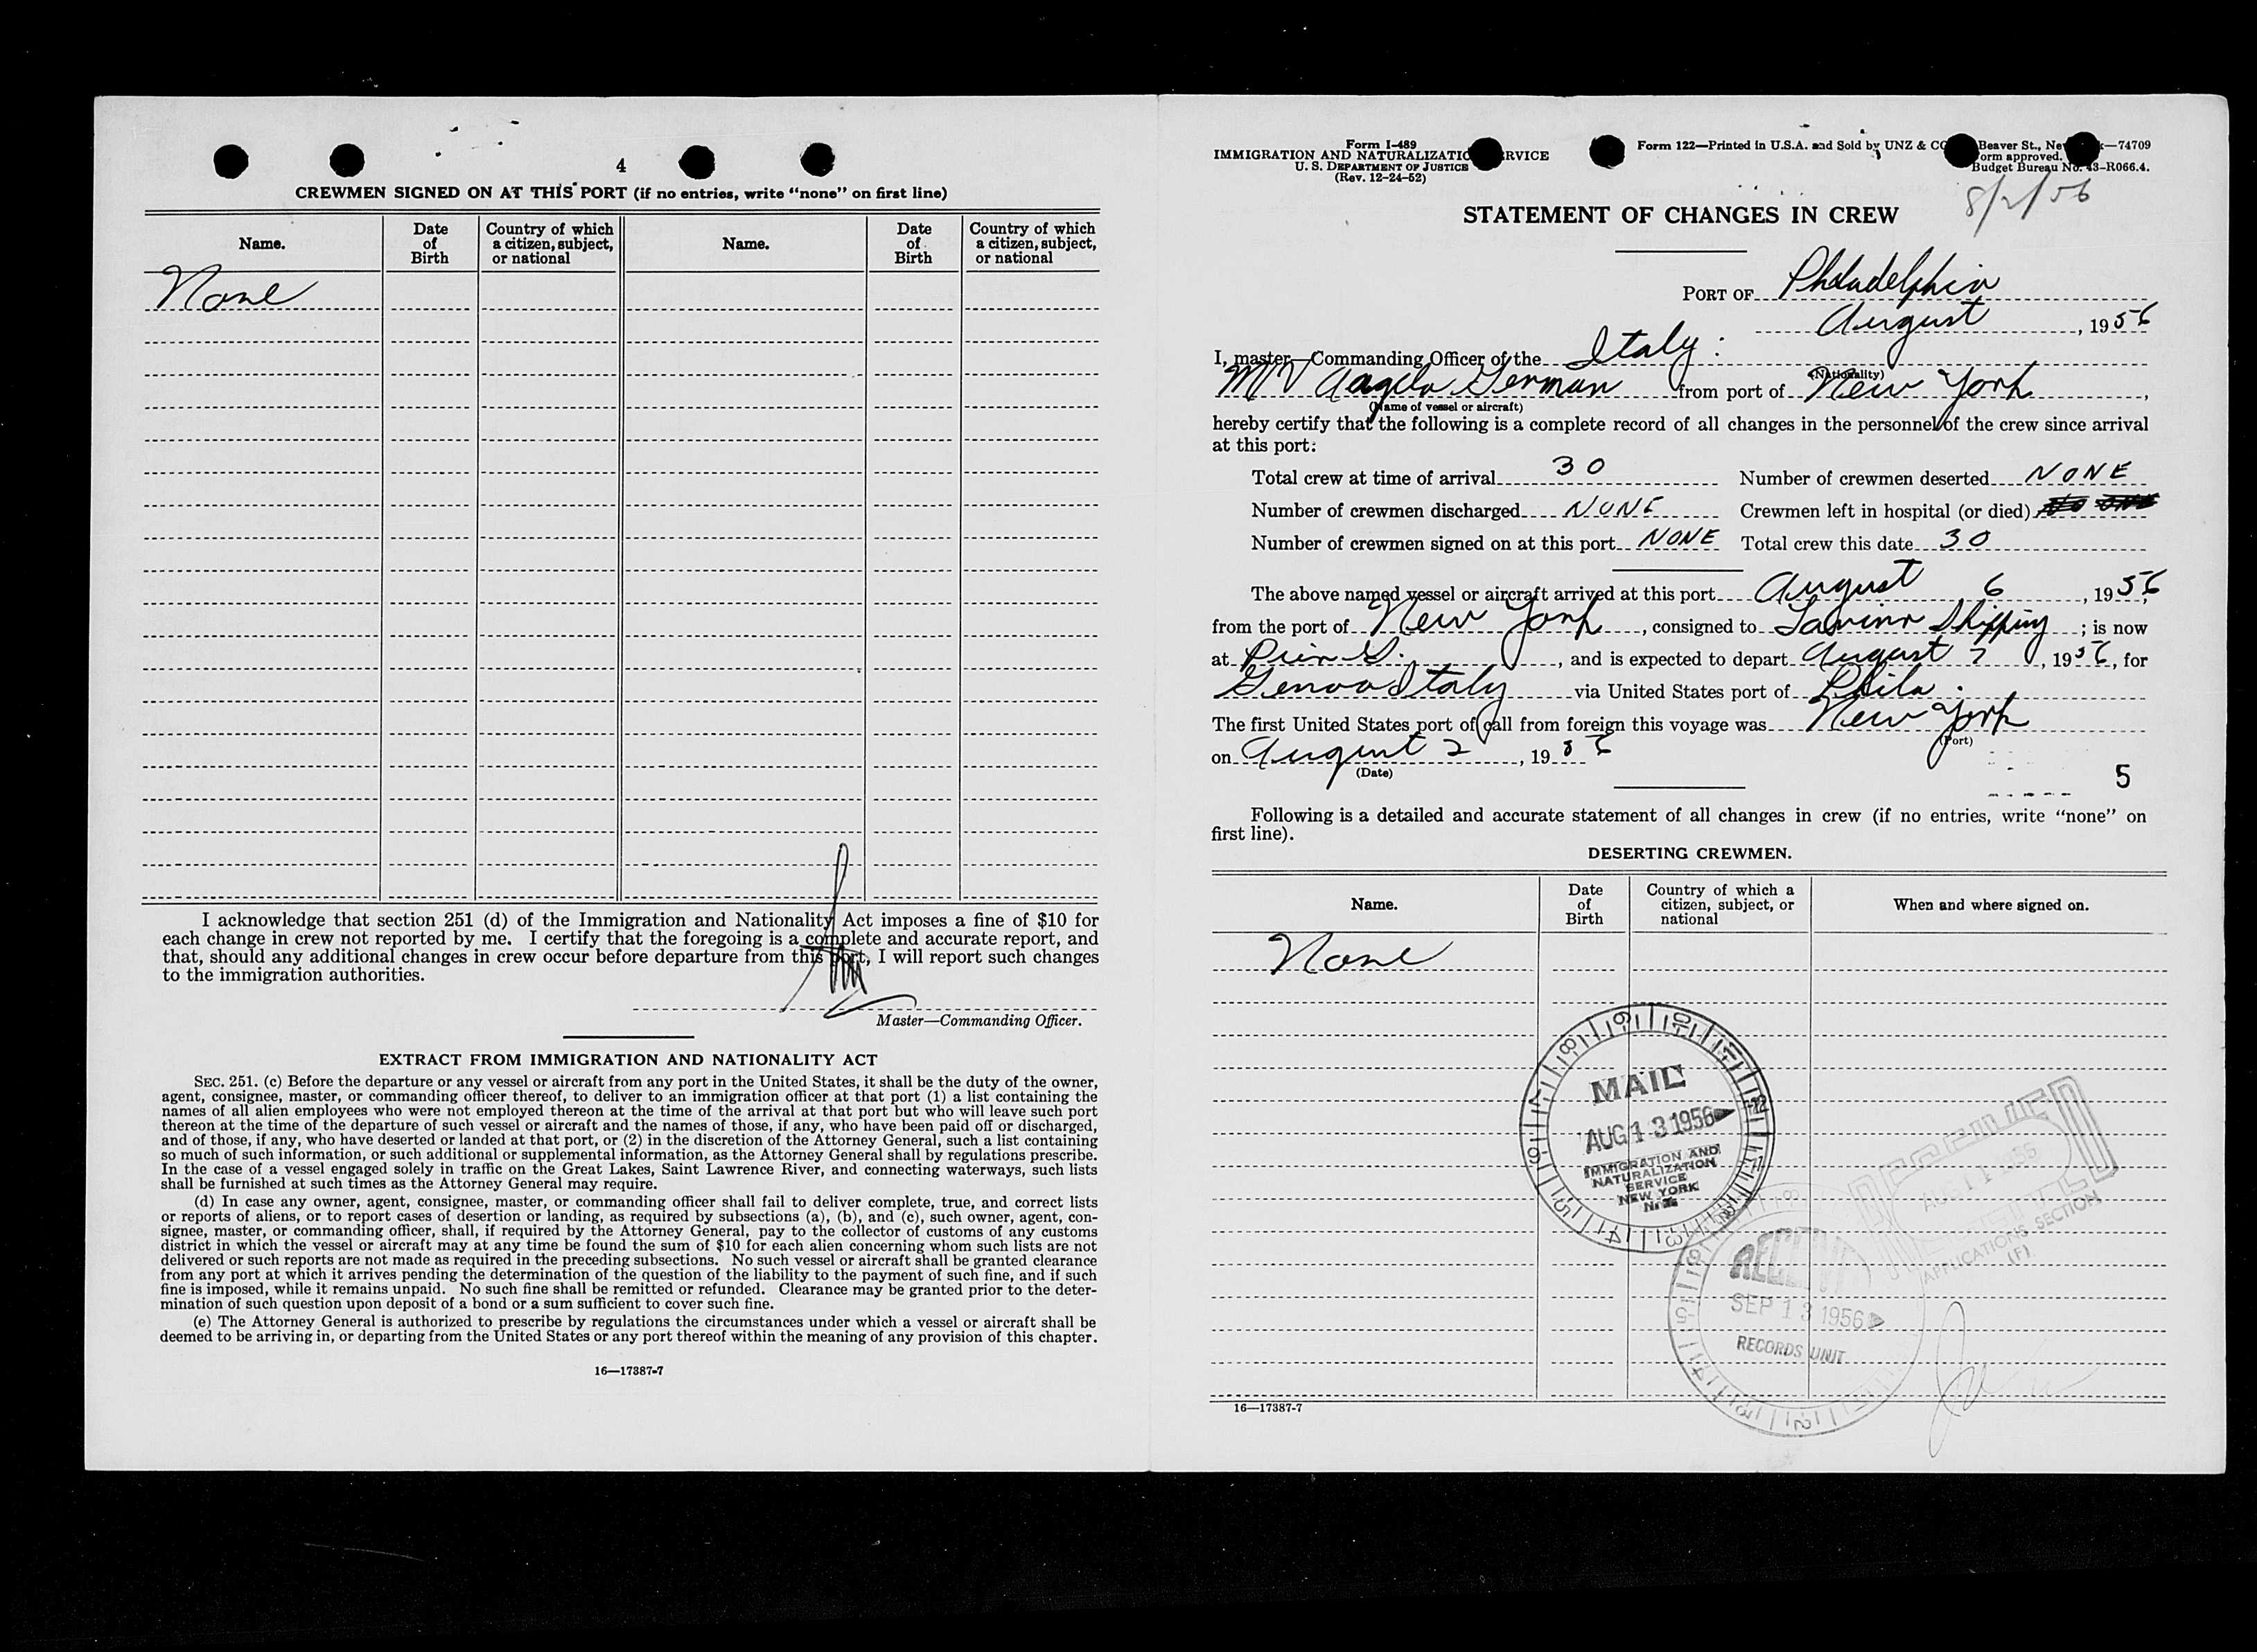 4
CREWMEN SIGNED ON AT THIS PORT (if no entries, write “none” on first line)
Name. Date of Birth Country of which a citizen, subject, or national Name. Date of Birth Country of which a citizen, subject, or national
None
I acknowledge that section 251 (d) of the Immigration and Nationality Act imposes a fine of $10 for
each change in crew not reported by me. I certify that the foregoing is a complete and accurate report, and
that, should any additional changes in crew occur before departure from this port, I will report such changes
to the immigration authorities.
Master—Commanding Officer.
EXTRACT FROM IMMIGRATION AND NATIONALITY ACT
SEC. 251. (c) Before the departure or any vessel or aircraft from any port in the United States, it shall be the duty of the owner,
agent, consignee, master, or commanding officer thereof, to deliver to an immigration officer at that port (1) a list containing the
names of all alien employees who were not employed thereon at the time of the arrival at that port but who will leave such port
thereon at the time of the departure of such vessel or aircraft and the names of those, if any, who have been paid off or discharged,
and of those, if any, who have deserted or landed at that port, or (2) in the discretion of the Attorney General, such a list containing
so much of such information, or such additional or supplemental information, as the Attorney General shall by regulations prescribe.
In the case of a vessel engaged solely in traffic on the Great Lakes, Saint Lawrence River, and connecting waterways, such lists
shall be furnished at such times as the Attorney General may require.
(d) In case any owner, agent, consignee, master, or commanding officer shall fail to deliver complete, true, and correct lists
or reports of aliens, or to report cases of desertion or landing, as required by subsections (a), (b), and (c), such owner, agent, con-
signee, master, or commanding officer, shall, if required by the Attorney General, pay to the collector of customs of any customs
district in which the vessel or aircraft may at any time be found the sum of $10 for each alien concerning whom such lists are not
delivered or such reports are not made as required in the preceding subsections. No such vessel or aircraft shall be granted clearance
from any port at which it arrives pending the determination of the question of the liability to the payment of such fine, and if such
fine is imposed, while it remains unpaid. No such fine shall be remitted or refunded. Clearance may be granted prior to the deter-
mination of such question upon deposit of a bond or a sum sufficient to cover such fine.
(e) The Attorney General is authorized to prescribe by regulations the circumstances under which a vessel or aircraft shall be
deemed to be arriving in, or departing from the United States or any port thereof within the meaning of any provision of this chapter.
16—17387-7
Form I-489
IMMIGRATION AND NATURALIZATIO RVICE
U. S. DEPARTMENT OF JUSTICE
(Rev. 12-24-52)
Form 122—Printed in U.S.A. and Sold by UNZ & CO Beaver St., Ne k—74709
orm approved.
Budget Bureau No. 43-R066.4.
8/2/56
STATEMENT OF CHANGES IN CREW
PORT OF Philadelphia
August, 1956
I, master—Commanding Officer of the Italy:
(Nationality)
M/V Angela German from port of New York,
(Name of vessel or aircraft)
hereby certify that the following is a complete record of all changes in the personnel of the crew since arrival
at this port:
Total crew at time of arrival 30 Number of crewmen deserted NONE
Number of crewmen discharged NONE Crewmen left in hospital (or died)
Number of crewmen signed on at this port NONE Total crew this date 30
The above named vessel or aircraft arrived at this port August 6, 1956
from the port of New York, consigned to Shipping; is now
at Pier, and is expected to depart August 7, 1956, for
Genoa Italy via United States port of Phila.
The first United States port of call from foreign this voyage was New York
(Port)
on August 2, 1956
(Date)
5
Following is a detailed and accurate statement of all changes in crew (if no entries, write “none” on
first line).
DESERTING CREWMEN.
Name. Date of Birth Country of which a citizen, subject, or national When and where signed on.
None
MAIL
AUG 13 1956
IMMIGRATION AND
NATURALIZATION
SERVICE
NEW YORK
AUG 11 1956
APPLICATIONS SECTION
(F)
SEP 13 1956
RECORDS UNIT
16—17387-7